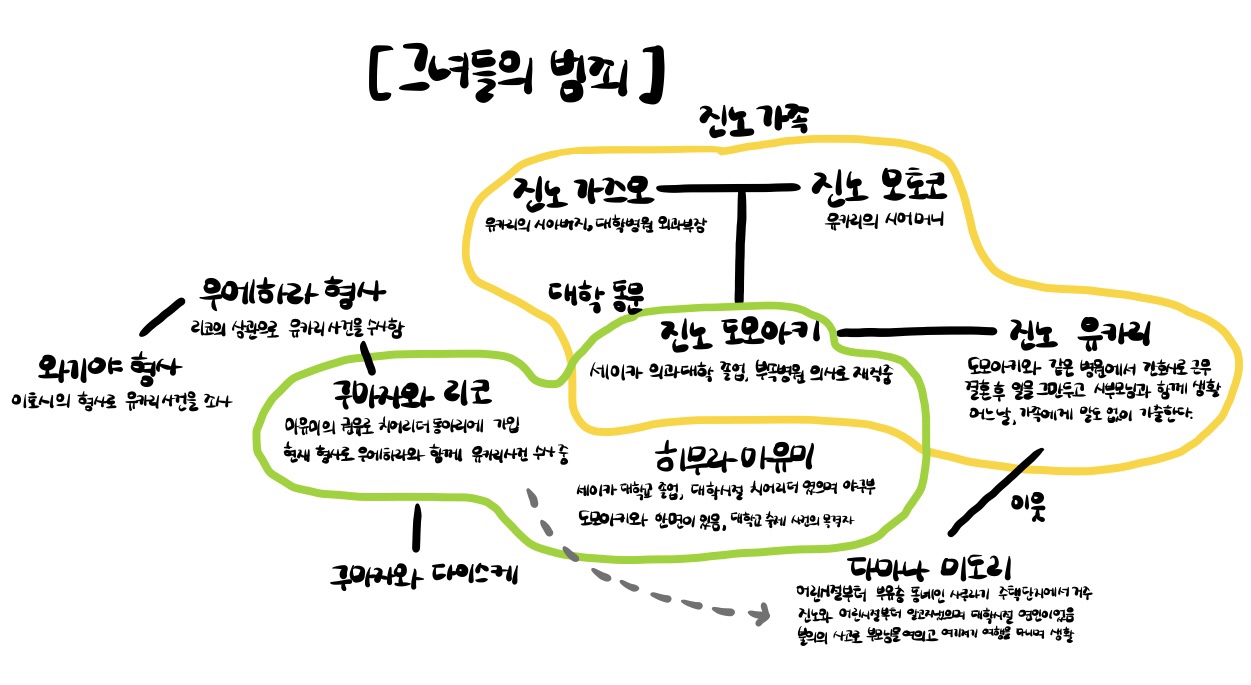 [그녀들의 범죄]
진노 가족
진노 가즈오
유카리의 시아버지, 대학병원 외과부장
진노 모토코
유카리의 시어머니
우에하라 형사
리코의 상관으로 유카리사건을 수사함
대학 동문
진노 도모아키
세이카 의과대학 졸업, 부속병원 의사로 재직중
진노 유카리
도모아키와 같은 병원에서 간호사로 근무
결혼 후 일을 그만두고 시부모님과 함께 생활
어느날, 가족에게 말도 없이 가출한다.
와기야 형사
이호시의 형사로 유카리사건을 조사
구마자와 리코
마유미의 권유로 치어리더동아리에 가입
현재 형사로 우에하라와 함께 유카리사건 수사 중
히무라 마유미
세이카 대학교 졸업, 대학시절 치어리더였으며 야구부
도모아키와 안면이 있음, 대학교 축제 사건의 목격자
이웃
구마자와 다이스케
다마나 미도리
어린시절부터 부유층 동네인 사쿠라기 주택단지에서 거주
진노와 어린시절부터 알고지냈으며 대학시절 연인이었음
불의의 사고로 부모님을 여의고 여기저기 여행을 다니며 생활